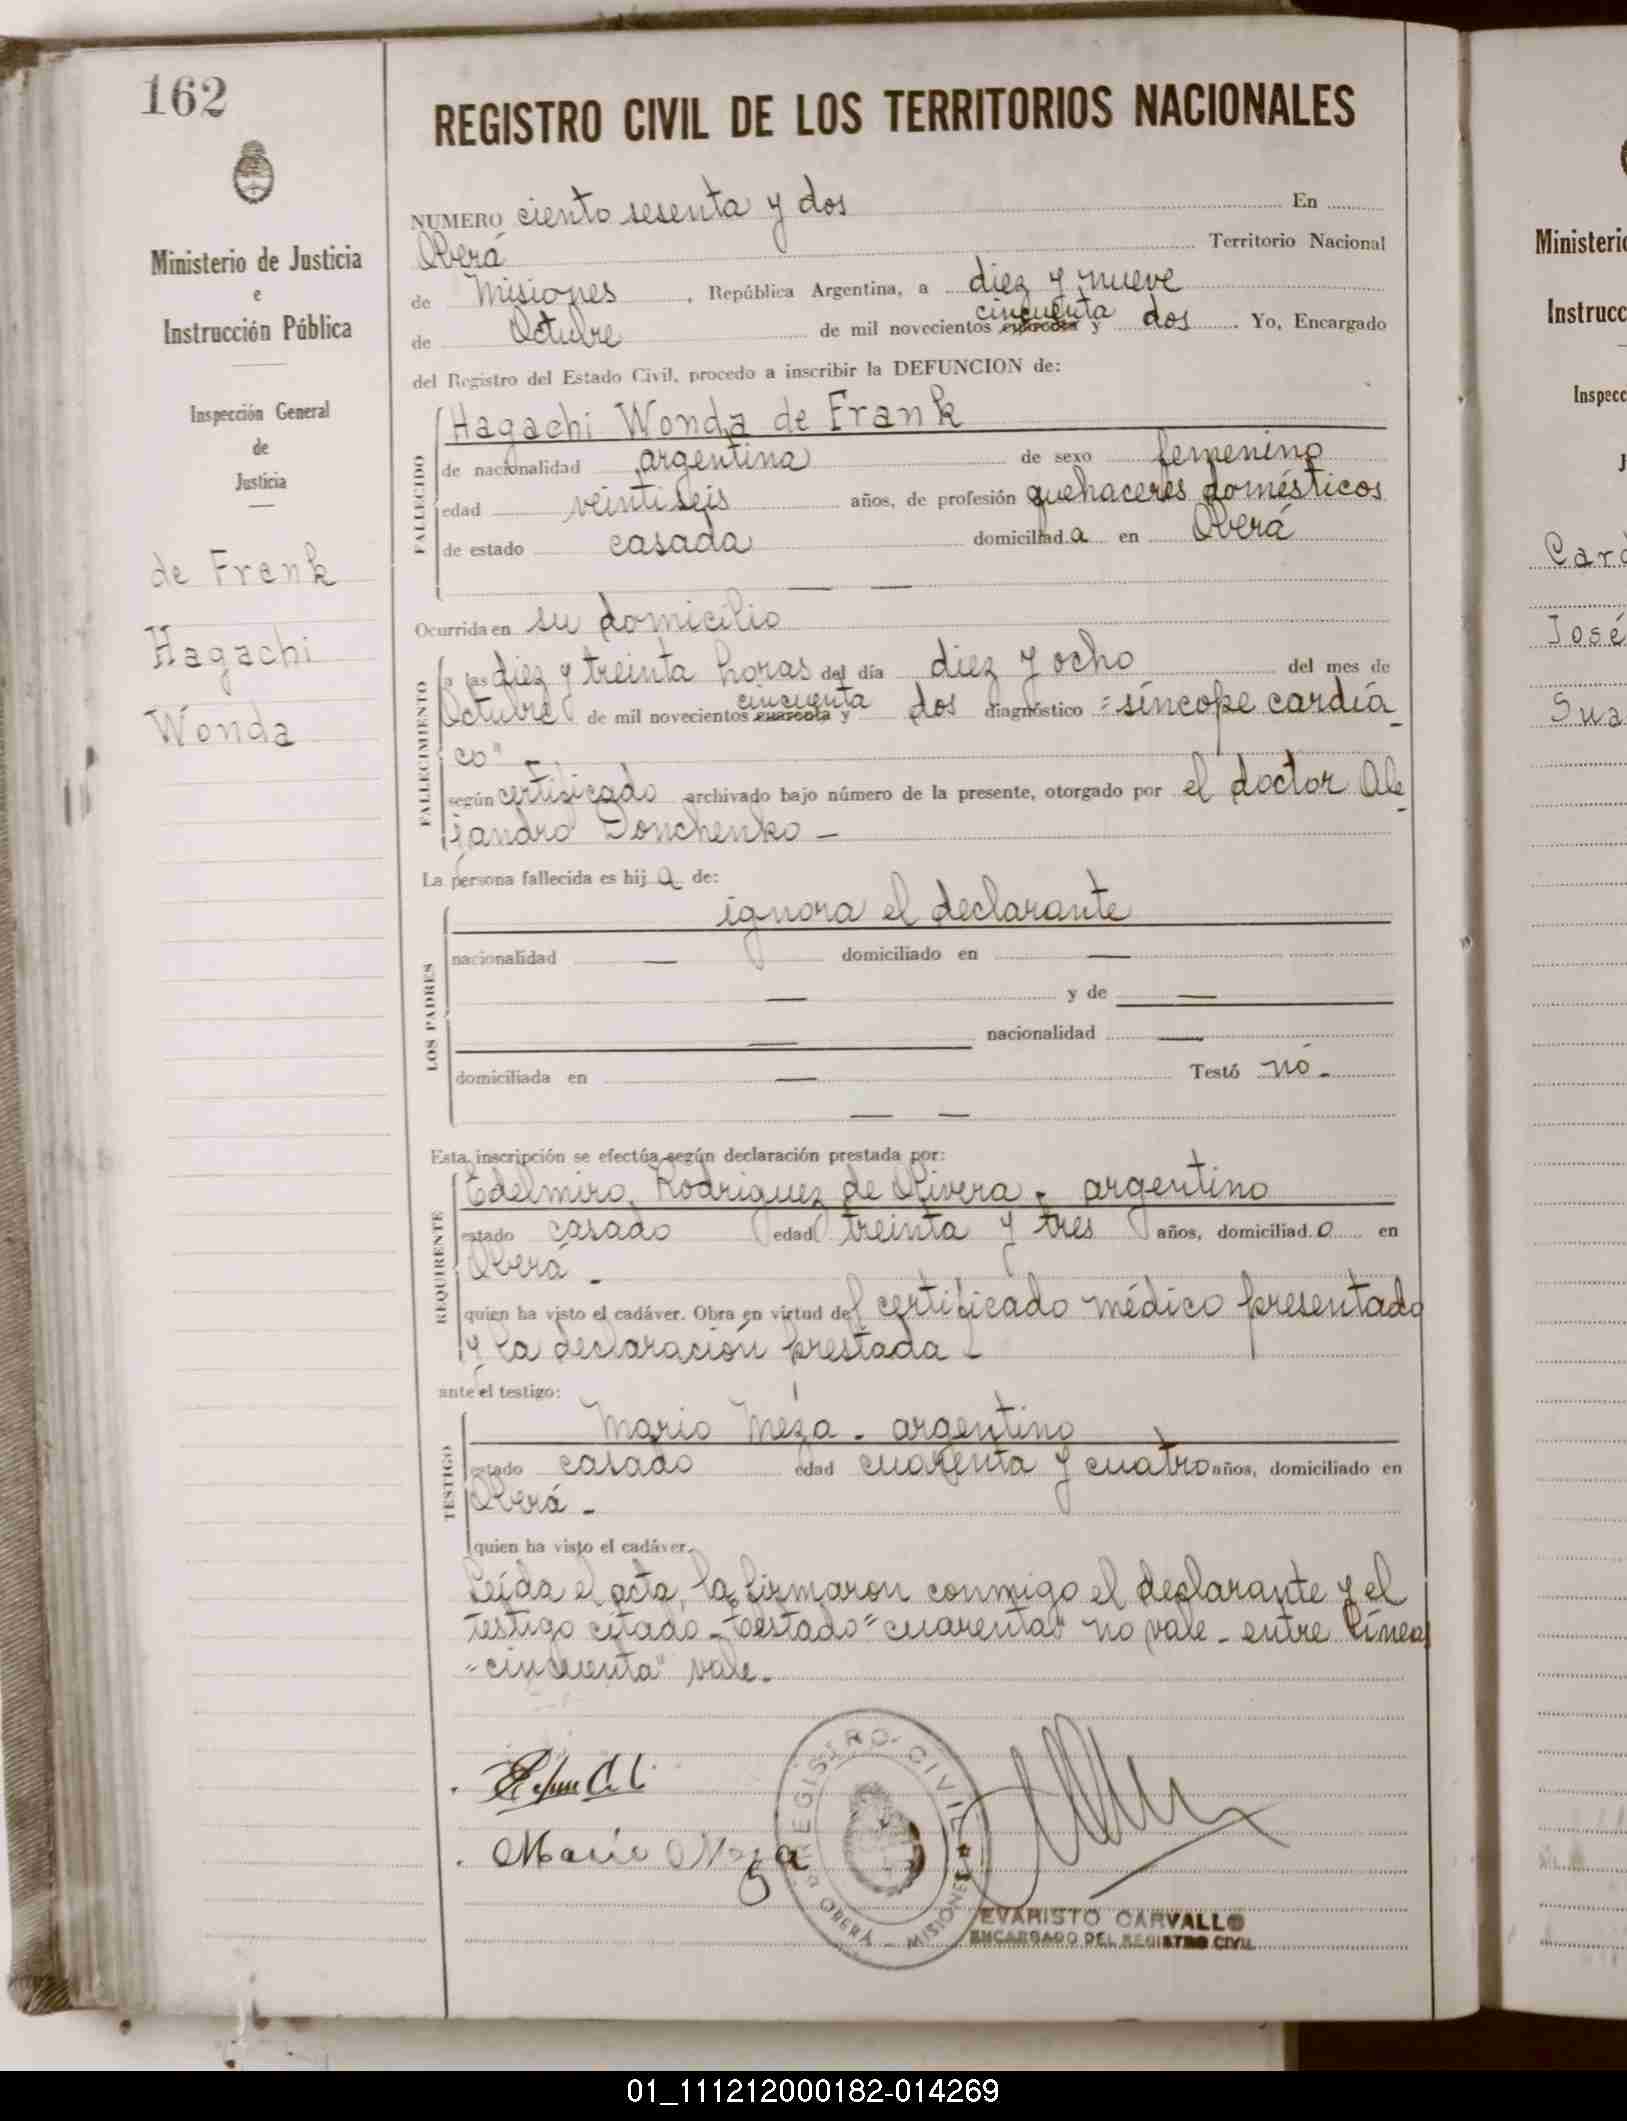 162
REGISTRO CIVIL DE LOS TERRITORIOS NACIONALES
Ministerio de Justicia
e
Instrucción Pública
Inspección General
de
Justicia
de Frank
Hagachi
Wonda
NUMERO ciento sesenta y dos En
Oberá Territorio Nacional
de Misiones, República Argentina, a diez y nueve
de Octubre de mil novecientos cuarenta cincuenta y dos. Yo, Encargado
del Registro del Estado Civil, procedo a inscribir la DEFUNCION de:
FALLECIDO
Hagachi Wonda de Frank
de nacionalidad argentina de sexo femenino
edad veintiseis años, de profesión quehaceres domésticos
de estado casada domiciliad a en Oberá
— —
Ocurrida en su domicilio
FALLECIMIENTO
a las diez y treinta horas del día diez y ocho del mes de
Octubre de mil novecientos cuarenta cincuenta y dos diagnóstico "síncope cardía
co" -
según certificado archivado bajo número de la presente, otorgado por el doctor Ale-
jandro Donchenko -
La persona fallecida es hij a de:
LOS PADRES
ignora el declarante
nacionalidad — domiciliado en —
— y de —
— nacionalidad —
domiciliada en — Testó no -
— —
Esta inscripción se efectúa según declaración prestada por:
REQUIRENTE
Edelmiro Rodriguez de Olivera - argentino
estado casado edad treinta y tres años, domiciliad o en
Oberá -
quien ha visto el cadáver. Obra en virtud del certificado médico presentado
y la declaración prestada -
ante el testigo:
TESTIGO
Mario Meza - argentino
estado casado edad cuarenta y cuatro años, domiciliado en
Oberá -
quien ha visto el cadáver.
Leída el acta, la firmaron conmigo el declarante y el
testigo citado - testado "cuarenta" no vale - entre línea
"cincuenta" vale -
Mario Meza
REGISTRO CIVIL
OBERA - MISIONES
EVARISTO CARVALLO
ENCARGADO DEL REGISTRO CIVIL
Ministerio
Instrucc
Inspecc
J
Card
José
Sua
01_111212000182-014269